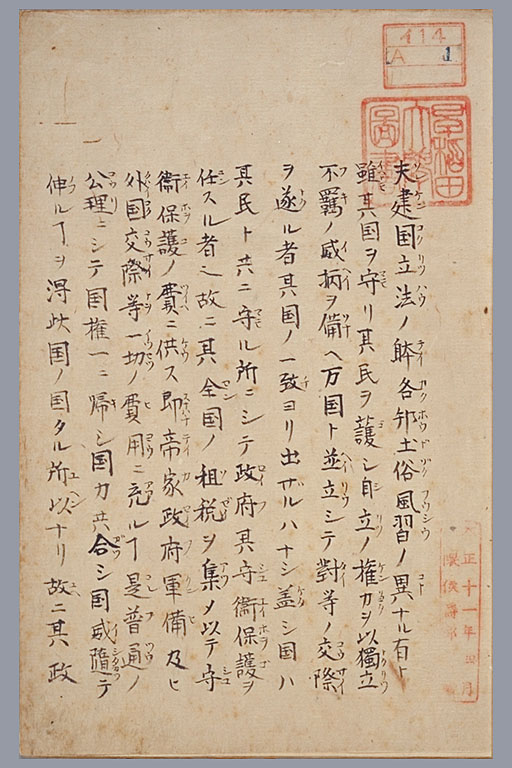 414
A 1
早稲田大学図書
夫建国立法ノ体各邦土俗風習ノ異ナル有ト
雖其国ヲ守リ其民ヲ護シ自立ノ権力ヲ以獨立
不羈ノ威柄ヲ備ヘ万国ト並立シテ對等ノ交際
ヲ遂ル者其国ノ一致ヨリ出ザルハナシ盖シ国ハ
其民ト共ニ守ル所ニシテ政府其守衞保護ヲ
任スル者也故ニ其全国ノ租税ヲ集メ以テ守
衞保護ノ費ニ供ス即帝家政府軍備及ヒ
外国交際等一切ノ費用ニ充ルヿ是普通ノ
公理ニシテ国権一ニ帰シ国力共合シ国威隨テ
伸ルヿヲ得此国ノ国タル所以ナリ故ニ其政
正十一年四月